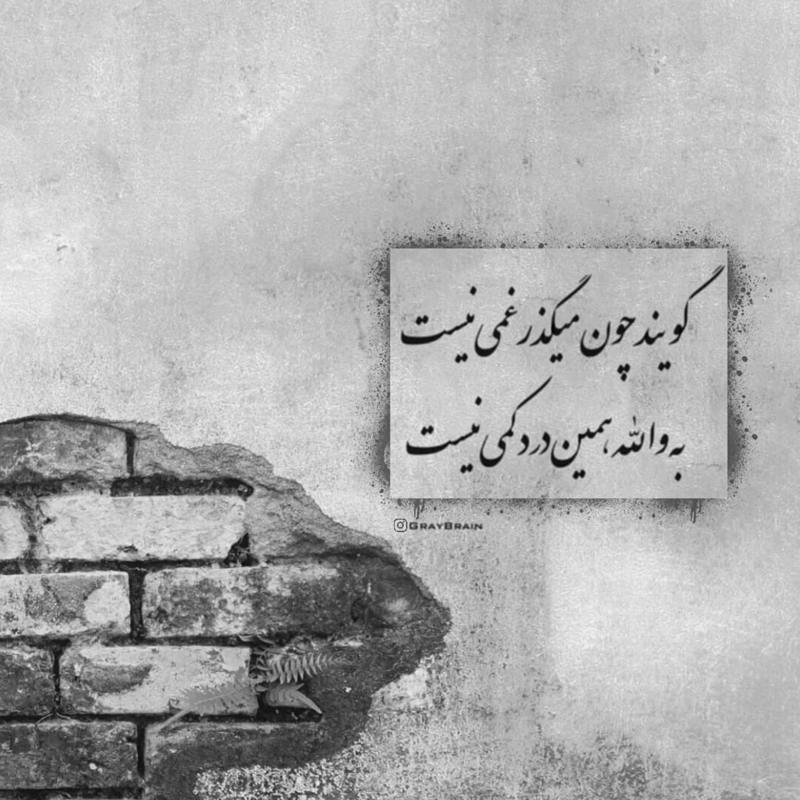 گویند چون میگذرد غمی نیست
به والله همین درد کمی نیست
GRAYBRAIN